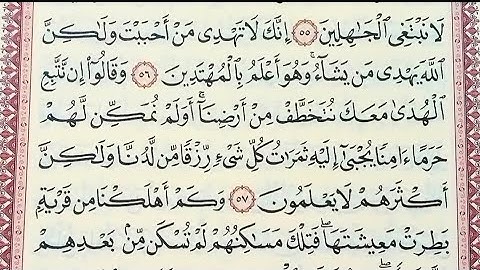 لَا نَبْتَغِى ٱلْجَـٰهِلِينَ ٥٥ إِنَّكَ لَا تَهْدِى مَنْ أَحْبَبْتَ وَلَـٰكِنَّ
ٱللَّهَ يَهْدِى مَن يَشَآءُ ۚ وَهُوَ أَعْلَمُ بِٱلْمُهْتَدِينَ ٥٦ وَقَالُوٓا۟ إِن نَّتَّبِعِ
ٱلْهُدَىٰ مَعَكَ نُتَخَطَّفْ مِنْ أَرْضِنَآ ۚ أَوَلَمْ نُمَكِّن لَّهُمْ
حَرَمًا ءَامِنًا يُجْبَىٰٓ إِلَيْهِ ثَمَرَٰتُ كُلِّ شَىْءٍ رِّزْقًا مِّن لَّدُنَّا وَلَـٰكِنَّ
أَكْثَرَهُمْ لَا يَعْلَمُونَ ٥٧ وَكَمْ أَهْلَكْنَا مِن قَرْيَةٍۭ
بَطِرَتْ مَعِيشَتَهَا ۖ فَتِلْكَ مَسَـٰكِنُهُمْ لَمْ تُسْكَن مِّنۢ بَعْدِهِمْ